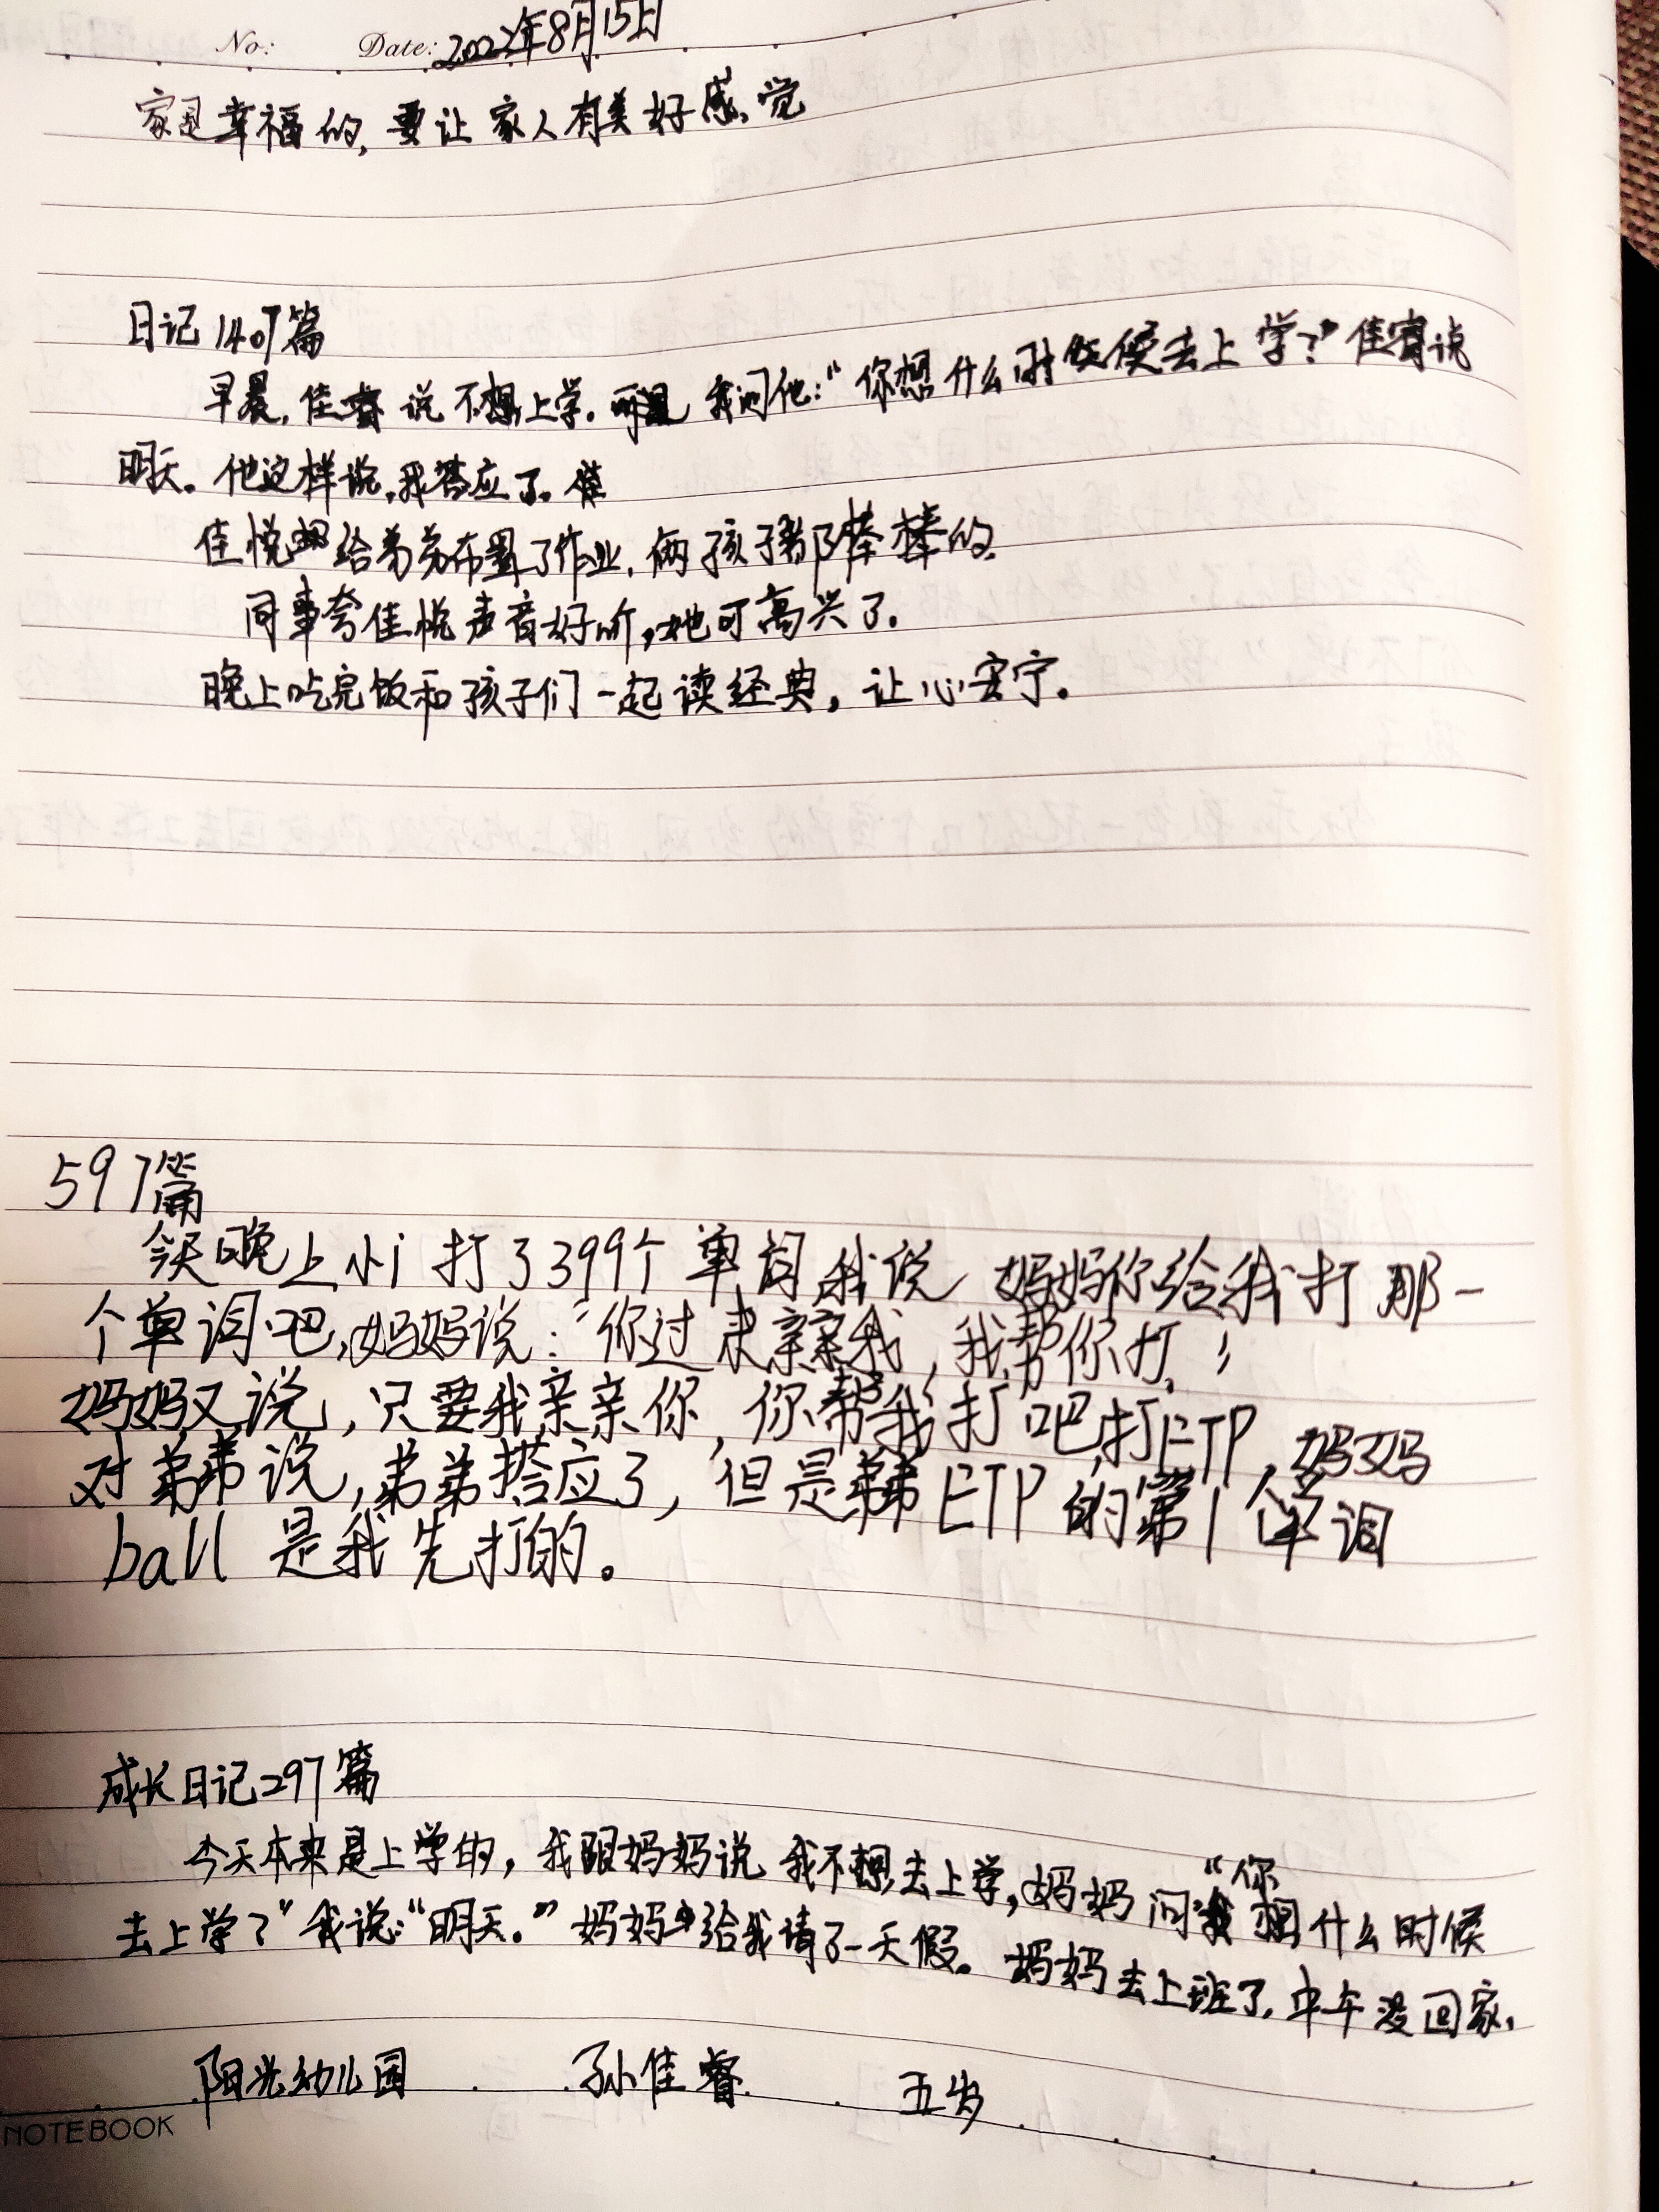 No: Date: 2022年8月15日
家是幸福的,要让家人有美好感觉
日记1407篇
早晨,佳睿说不想上学。我问他:“你想什么时候去上学?”佳睿说
明天。他这样说,我答应了。
佳悦给弟弟布置了作业,俩孩子都棒棒的。
同事夸佳悦声音好听,她可高兴了。
晚上吃完饭和孩子们一起读经典,让心安宁。
597篇
今天晚上小i打了399个单词我说 妈妈你给我打那一
个单词吧,妈妈说:“你过来亲亲我,我帮你打。”
妈妈又说,只要我亲亲你,你帮我打吧,打ETP,妈妈
对弟弟说,弟弟答应了,但是弟弟ETP的第1个单词
ball 是我先打的。
成长日记297篇
今天本来是上学的,我跟妈妈说我不想去上学,妈妈问我“你想什么时候
去上学?”我说:“明天。”妈妈给我请了一天假。妈妈去上班了,中午没回家,
阳光幼儿园 孙佳睿 五岁
NOTEBOOK